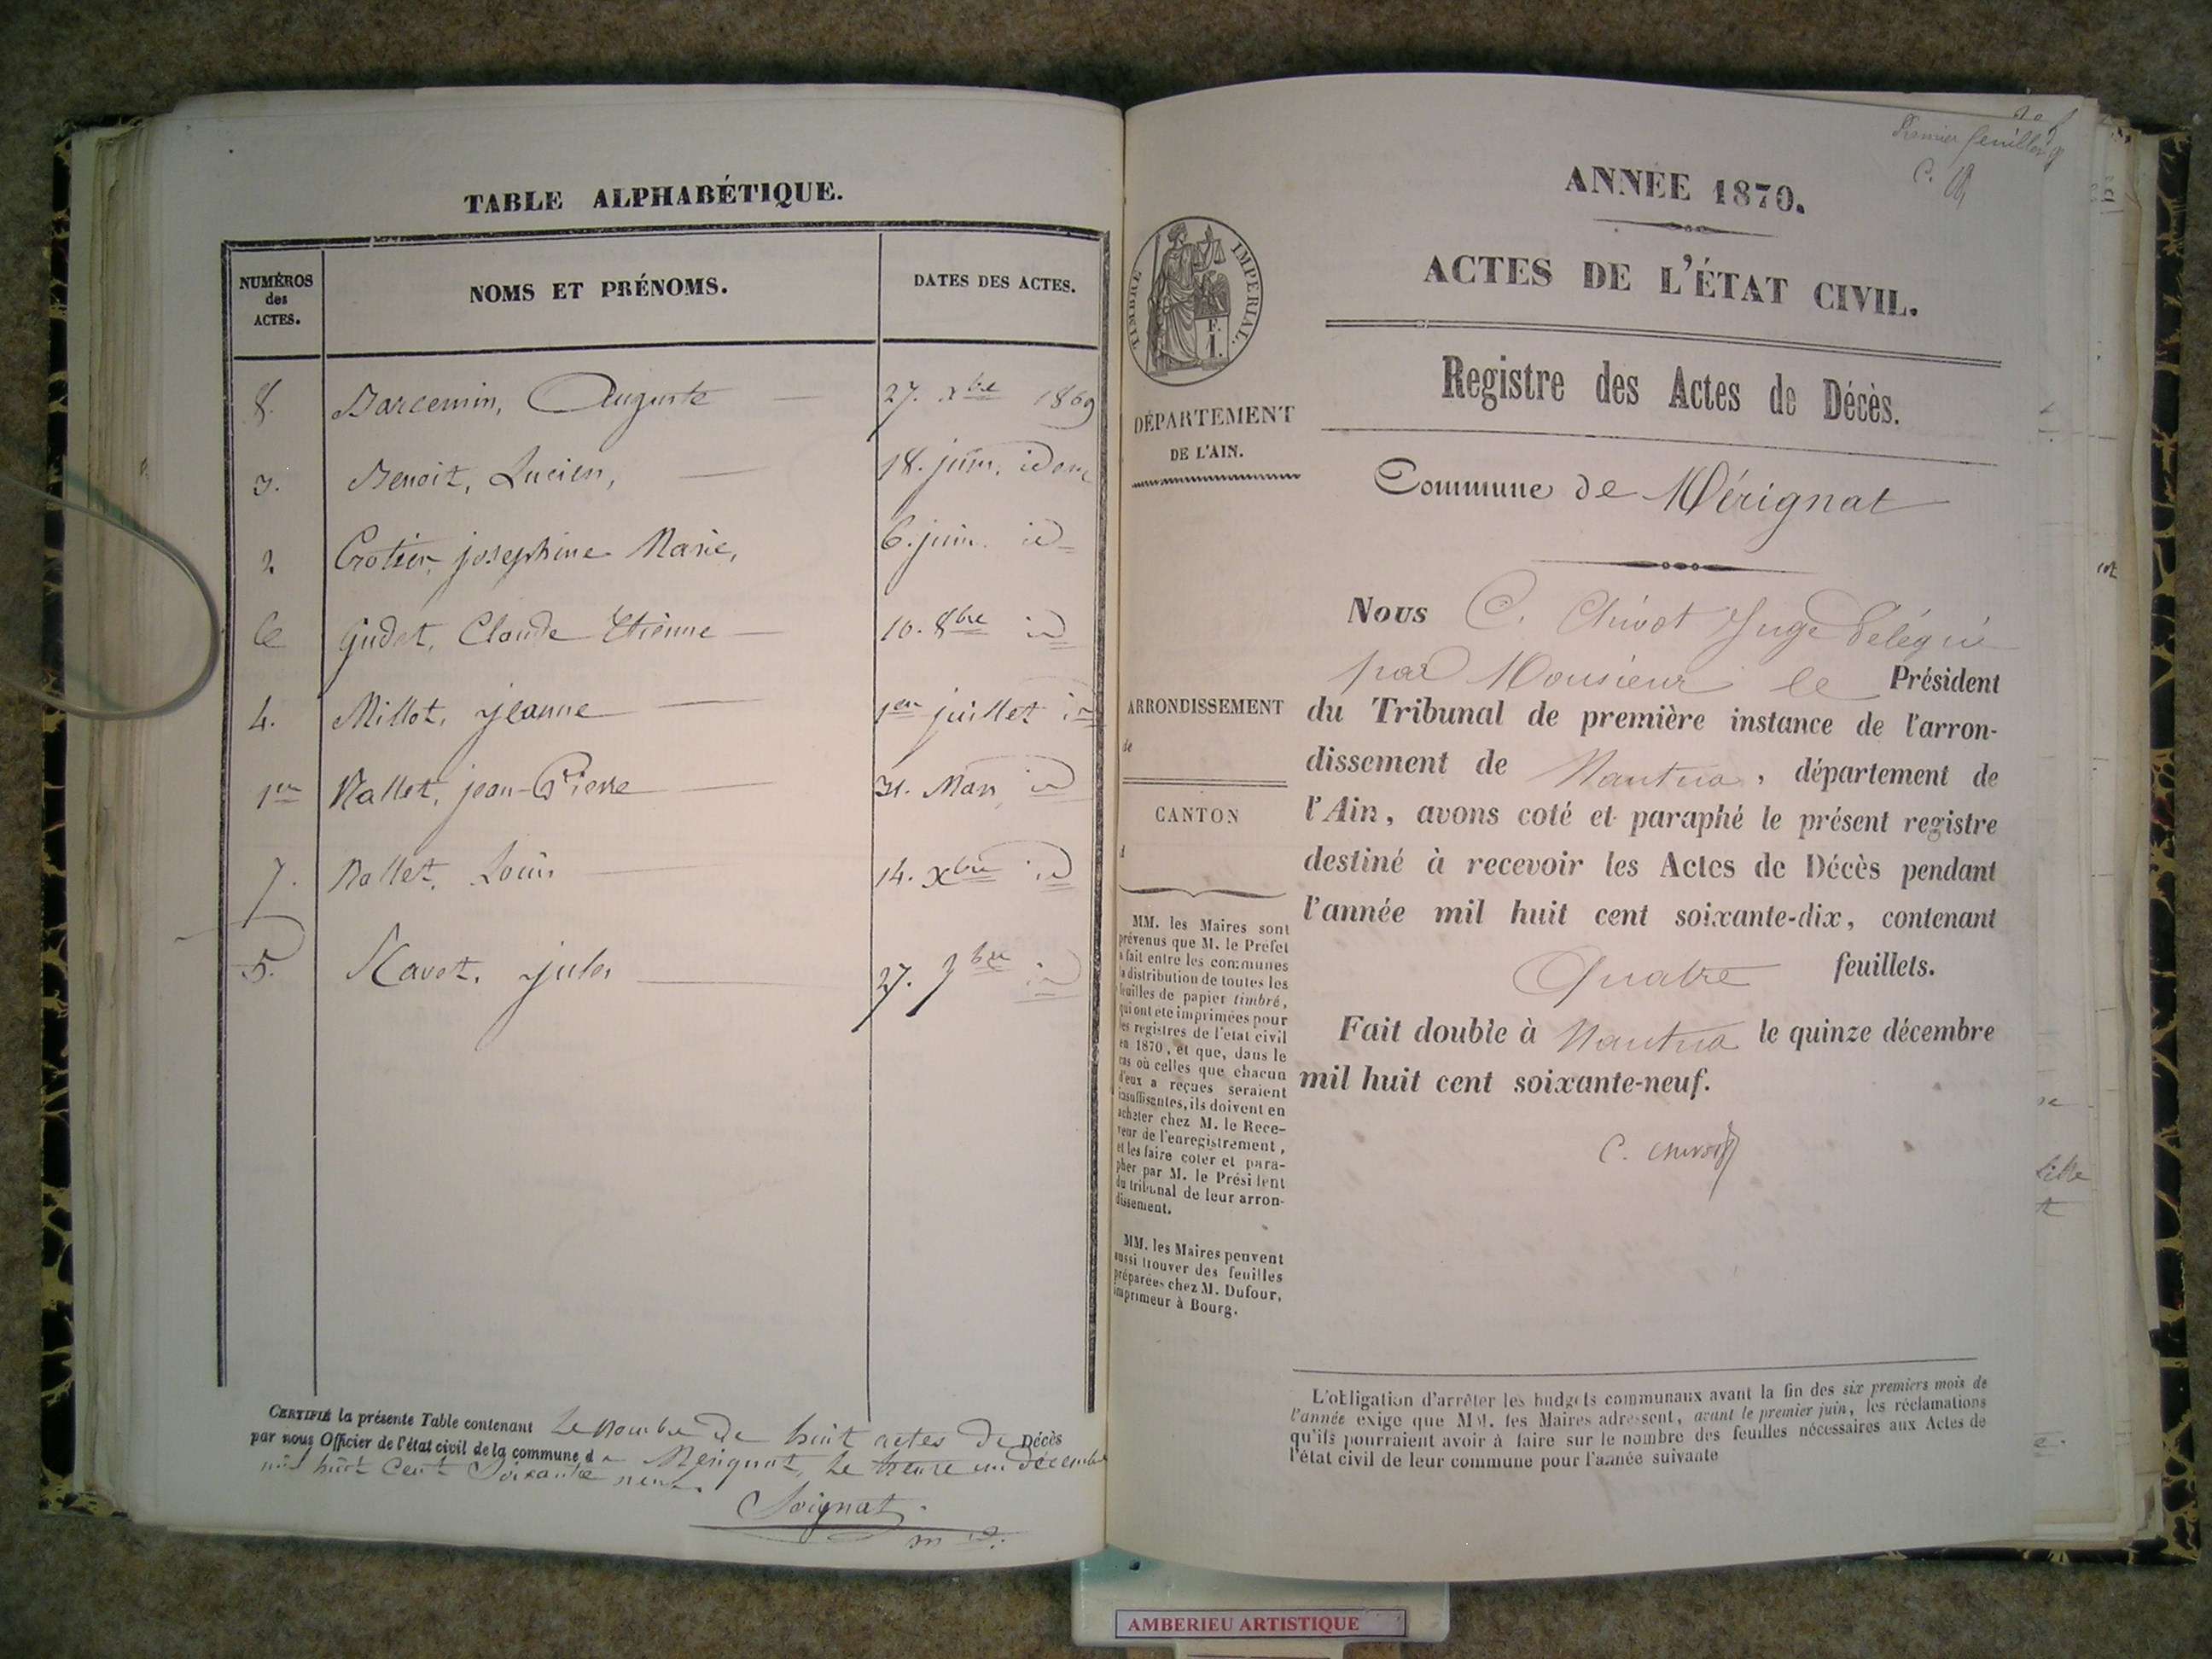 TABLE ALPHABÉTIQUE.
NUMÉROS des ACTES. NOMS ET PRÉNOMS. DATES DES ACTES.
8. Barcemin, Auguste 27. xbre 1869
3. Benoit, Lucien, 18. juin. idem
2 Crotier, josephine Marie, 6. juin. id
6 Gudet, Claude Etienne 10. 8bre id
4. Millot, jeanne 1er juillet id
1er Nallet, jean-Pierre 31. Mars id
7. Nallet, Louis 14. Xbre id
5. Navet, jules 27. 7bre id
CERTIFIÉ la présente Table contenant le nombre de huit actes de Décès
par nous Officier de l'état civil de la commune de Merignat, le trente un décembre
mil huit cent soixante neuf.
Soignat
Premier feuillet
C.
ANNÉE 1870.
ACTES DE L'ÉTAT CIVIL.
TIMBRE IMPÉRIAL.
F.
1.
Registre des Actes de Décès.
DÉPARTEMENT
DE L'AIN.
Commune de Mérignat
Nous C. Chivot Juge délégué
par Monsieur le Président
du Tribunal de première instance de l'arron-
dissement de Nantua, département de
l'Ain, avons coté et paraphé le présent registre
destiné à recevoir les Actes de Décès pendant
l'année mil huit cent soixante-dix, contenant
Quatre feuillets.
Fait double à Nantua le quinze décembre
mil huit cent soixante-neuf.
C. Chivot
ARRONDISSEMENT
de
CANTON
d
MM. les Maires sont
prévenus que M. le Préfet
a fait entre les communes
la distribution de toutes les
feuilles de papier timbré,
qui ont été imprimées pour
les registres de l'état civil
en 1870, et que, dans le
cas où celles que chacun
d'eux a reçues seraient
insuffisantes, ils doivent en
acheter chez M. le Rece-
veur de l'enregistrement,
et les faire coter et para-
pher par M. le Président
du tribunal de leur arron-
dissement.
MM. les Maires peuvent
aussi trouver des feuilles
préparées chez M. Dufour,
imprimeur à Bourg.
L'obligation d'arrêter les budgets communaux avant la fin des six premiers mois de
l'année exige que MM. les Maires adressent, avant le premier juin, les réclamations
qu'ils pourraient avoir à faire sur le nombre des feuilles nécessaires aux Actes de
l'état civil de leur commune pour l'année suivante
AMBERIEU ARTISTIQUE